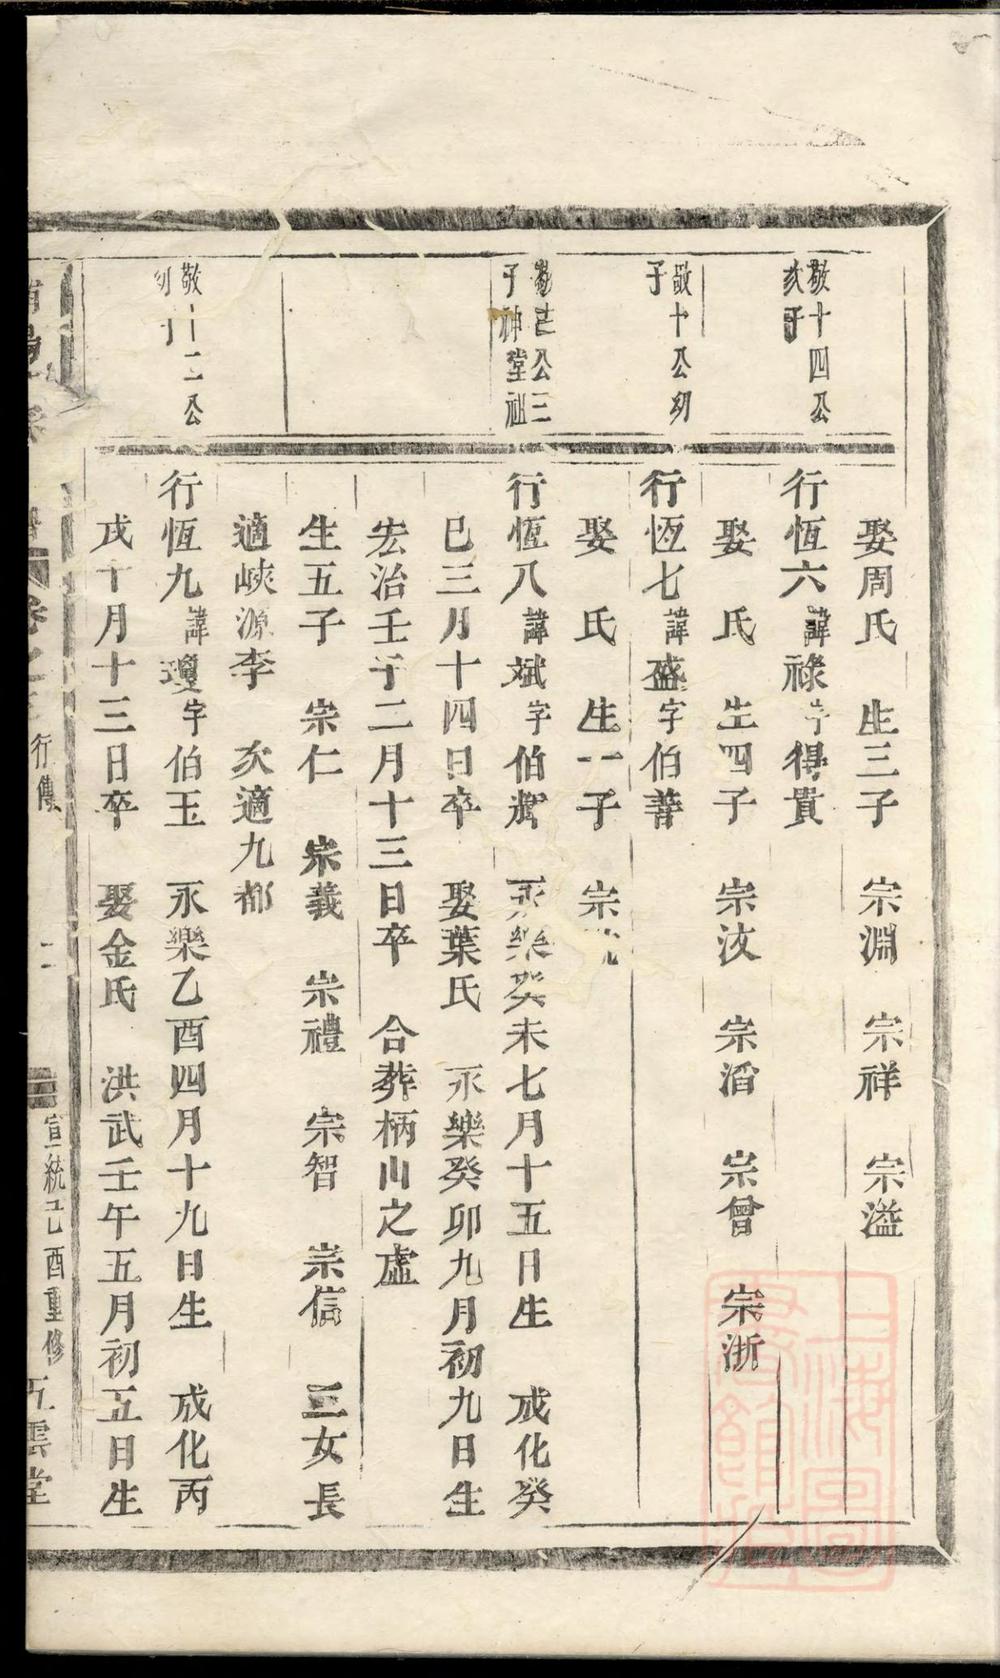 娶周氏 生三子 宗淵 宗祥 宗溢
敬十四公
次子
行恆六諱祿字得貴
娶 氏 生四子 宗汶 宗滔 宗曾 宗浙
敬十公幼
子
行恆七諱盛字伯善
娶 氏 生一子 宗
公三
子神堂祖
行恆八諱斌字伯 永樂癸未七月十五日生 成化癸
巳三月十四日卒 娶葉氏 永樂癸卯九月初九日生
宏治壬子二月十三日卒 合葬柄山之盧
生五子 宗仁 宗義 宗禮 宗智 宗信 三女長
適峽源李 次適九都
敬十二公
幼子
行恆九諱瓊字伯玉 永樂乙酉四月十九日生 成化丙
戌十月十三日卒 娶金氏 洪武壬午五月初五日生
行傳
宣統己酉重修 五雲堂
上海圖書館藏